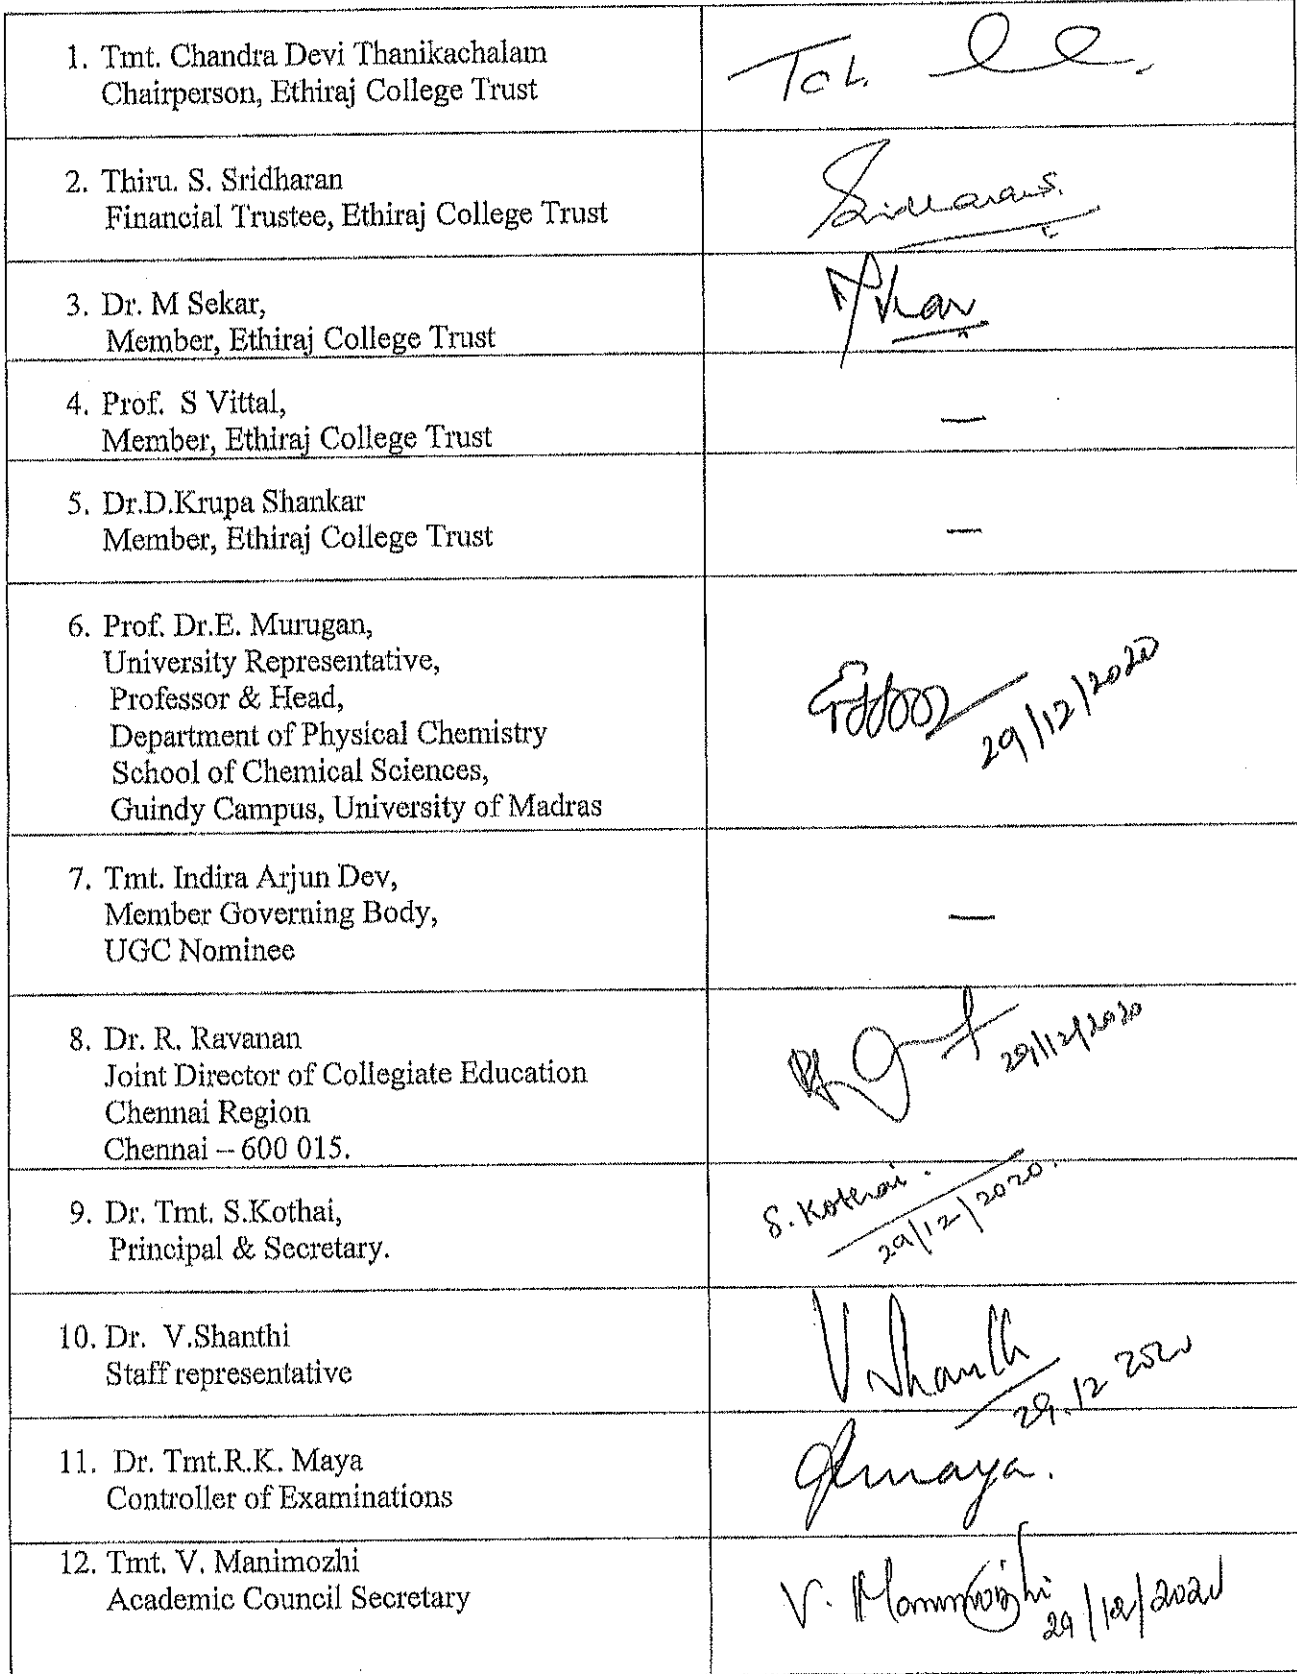 1. Tmt. Chandra Devi Thanikachalam
Chairperson, Ethiraj College Trust
2. Thiru. S. Sridharan
Financial Trustee, Ethiraj College Trust
Sridharan S.
3. Dr. M Sekar,
Member, Ethiraj College Trust
4. Prof. S Vittal,
Member, Ethiraj College Trust
—
5. Dr.D.Krupa Shankar
Member, Ethiraj College Trust
—
6. Prof. Dr.E. Murugan,
University Representative,
Professor & Head,
Department of Physical Chemistry
School of Chemical Sciences,
Guindy Campus, University of Madras
29/12/2020
7. Tmt. Indira Arjun Dev,
Member Governing Body,
UGC Nominee
—
8. Dr. R. Ravanan
Joint Director of Collegiate Education
Chennai Region
Chennai – 600 015.
29/12/2020
9. Dr. Tmt. S.Kothai,
Principal & Secretary.
S. Kothai.
29/12/2020.
10. Dr. V.Shanthi
Staff representative
V. Shanthi
29.12 2020
11. Dr. Tmt.R.K. Maya
Controller of Examinations
12. Tmt. V. Manimozhi
Academic Council Secretary
V. Manimozhi
29/12/2020